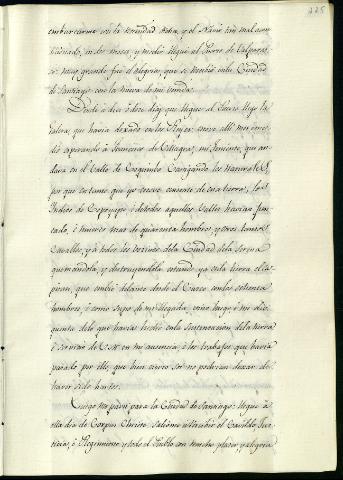 225
embarcarme con la brevedad dicha, y el Navio tan mal acon-
dicionado, en dos meses, y medio llegué al Puerto de Valparai-
so: muy grande fué el alegria, que se recibió en la Ciudad
de Santiago con la nueva de mi venida.
Desde á diez ó doce dias que llegué al Puerto llegó la
Galera, que havia dexado en los Reyes: estuve alli mes, é me-
dio esperando á Francisco de Villagra, mi Teniente, que an-
daba en el Valle de Coquimbo Castigando los naturales,
por que en tanto que yo estuve ausente de esta tierra, los
Indios de Copoyapo é de todos aquellos Valles havian jun-
tado, é muerto mas de quarenta hombres, y otros tantos
Cavallos, y á todos los vecinos de la Ciudad de la Serena
quemandola, y destruyendola estando ya toda tierra al-
que embié delante desde el Cuzco con los setenta
hombres, é como supo de mi llegada, vino luego é me dió
quenta de lo que havia hecho en la sustentacion de la tierra
é servicio de V.M. en mi ausencia, é los trabajos que havia
pasado por ello, que bien cierto soi no podrian dexar de
haver sido hartos.
Luego me partí para la Ciudad de Santiago: llegué á
ella dia de Corpus Christi. Salióme á recibir el Cavildo, Jus-
ticia, é Regimiento, y todo el Pueblo con mucho placer y alegria